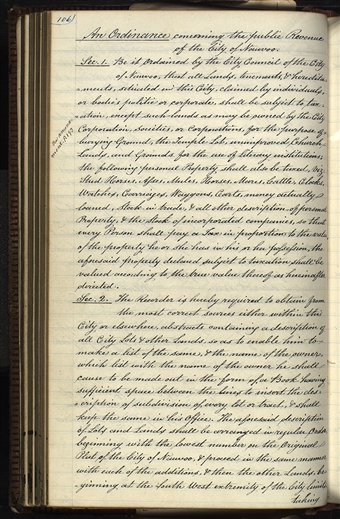 106
An Ordinance concerning the public Revenue
of the City of Nauvoo.
Sec. 1. Be it Ordained by the City Council of the City
of Nauvoo, that all Lands, tenements, & heredita-
-ments, situated in this City, claimed by individuals,
or bodies politic or corporate, shall be subject to tax-
-ation, except such lands as may be owned by the City
Corporation, Societies, or corporations, for the purpose of
burying Ground, the Temple Lot, unimproved Church
Lands, and Grounds for the use of literary institutions,
the following personal Property shall also be taxed, viz,
Stud Horses, Asses, Mules, Horses, Mares, Cattle, Clocks,
Watches, Carriages, Waggons, Carts, money actually
loaned, Stock in trade, & all other description of personal
Property, & the Stock of incorporated companies, so that
every Person shall pay a Tax in proportion to the value
of the property he or she has in his or her possession, the
aforesaid property declared subject to taxation shall be
valued according to the true value thereof as hereinafter
directed.
Sec. 2. The Recorder is hereby required to obtain from
the most correct sources either within this
City or elsewhere, abstracts containing a description of
all City Lots & other Lands, so as to enable him to
make a list of the same, & the name of the owner,
which list with the name of the owner he shall
cause to be made out in the form of a Book, leaving
sufficient space between the lines to insert the des-
-cription of subdivision of every lot or tract, & shall
keep the same in his Office. The aforesaid description
of Lots and Lands shall be arranged in regular Order
beginning with the lowest number on the Original
Plat of the City of Nauvoo, & proceed in the same manner
with each of the additions, & then the other Lands, be-
ginning at the South West extremity of the City limits
taking